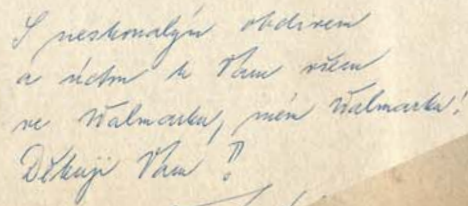 S neskonalým obdivem
a úctou k Vám všem
ve Walmarku,
Děkuji Vám!